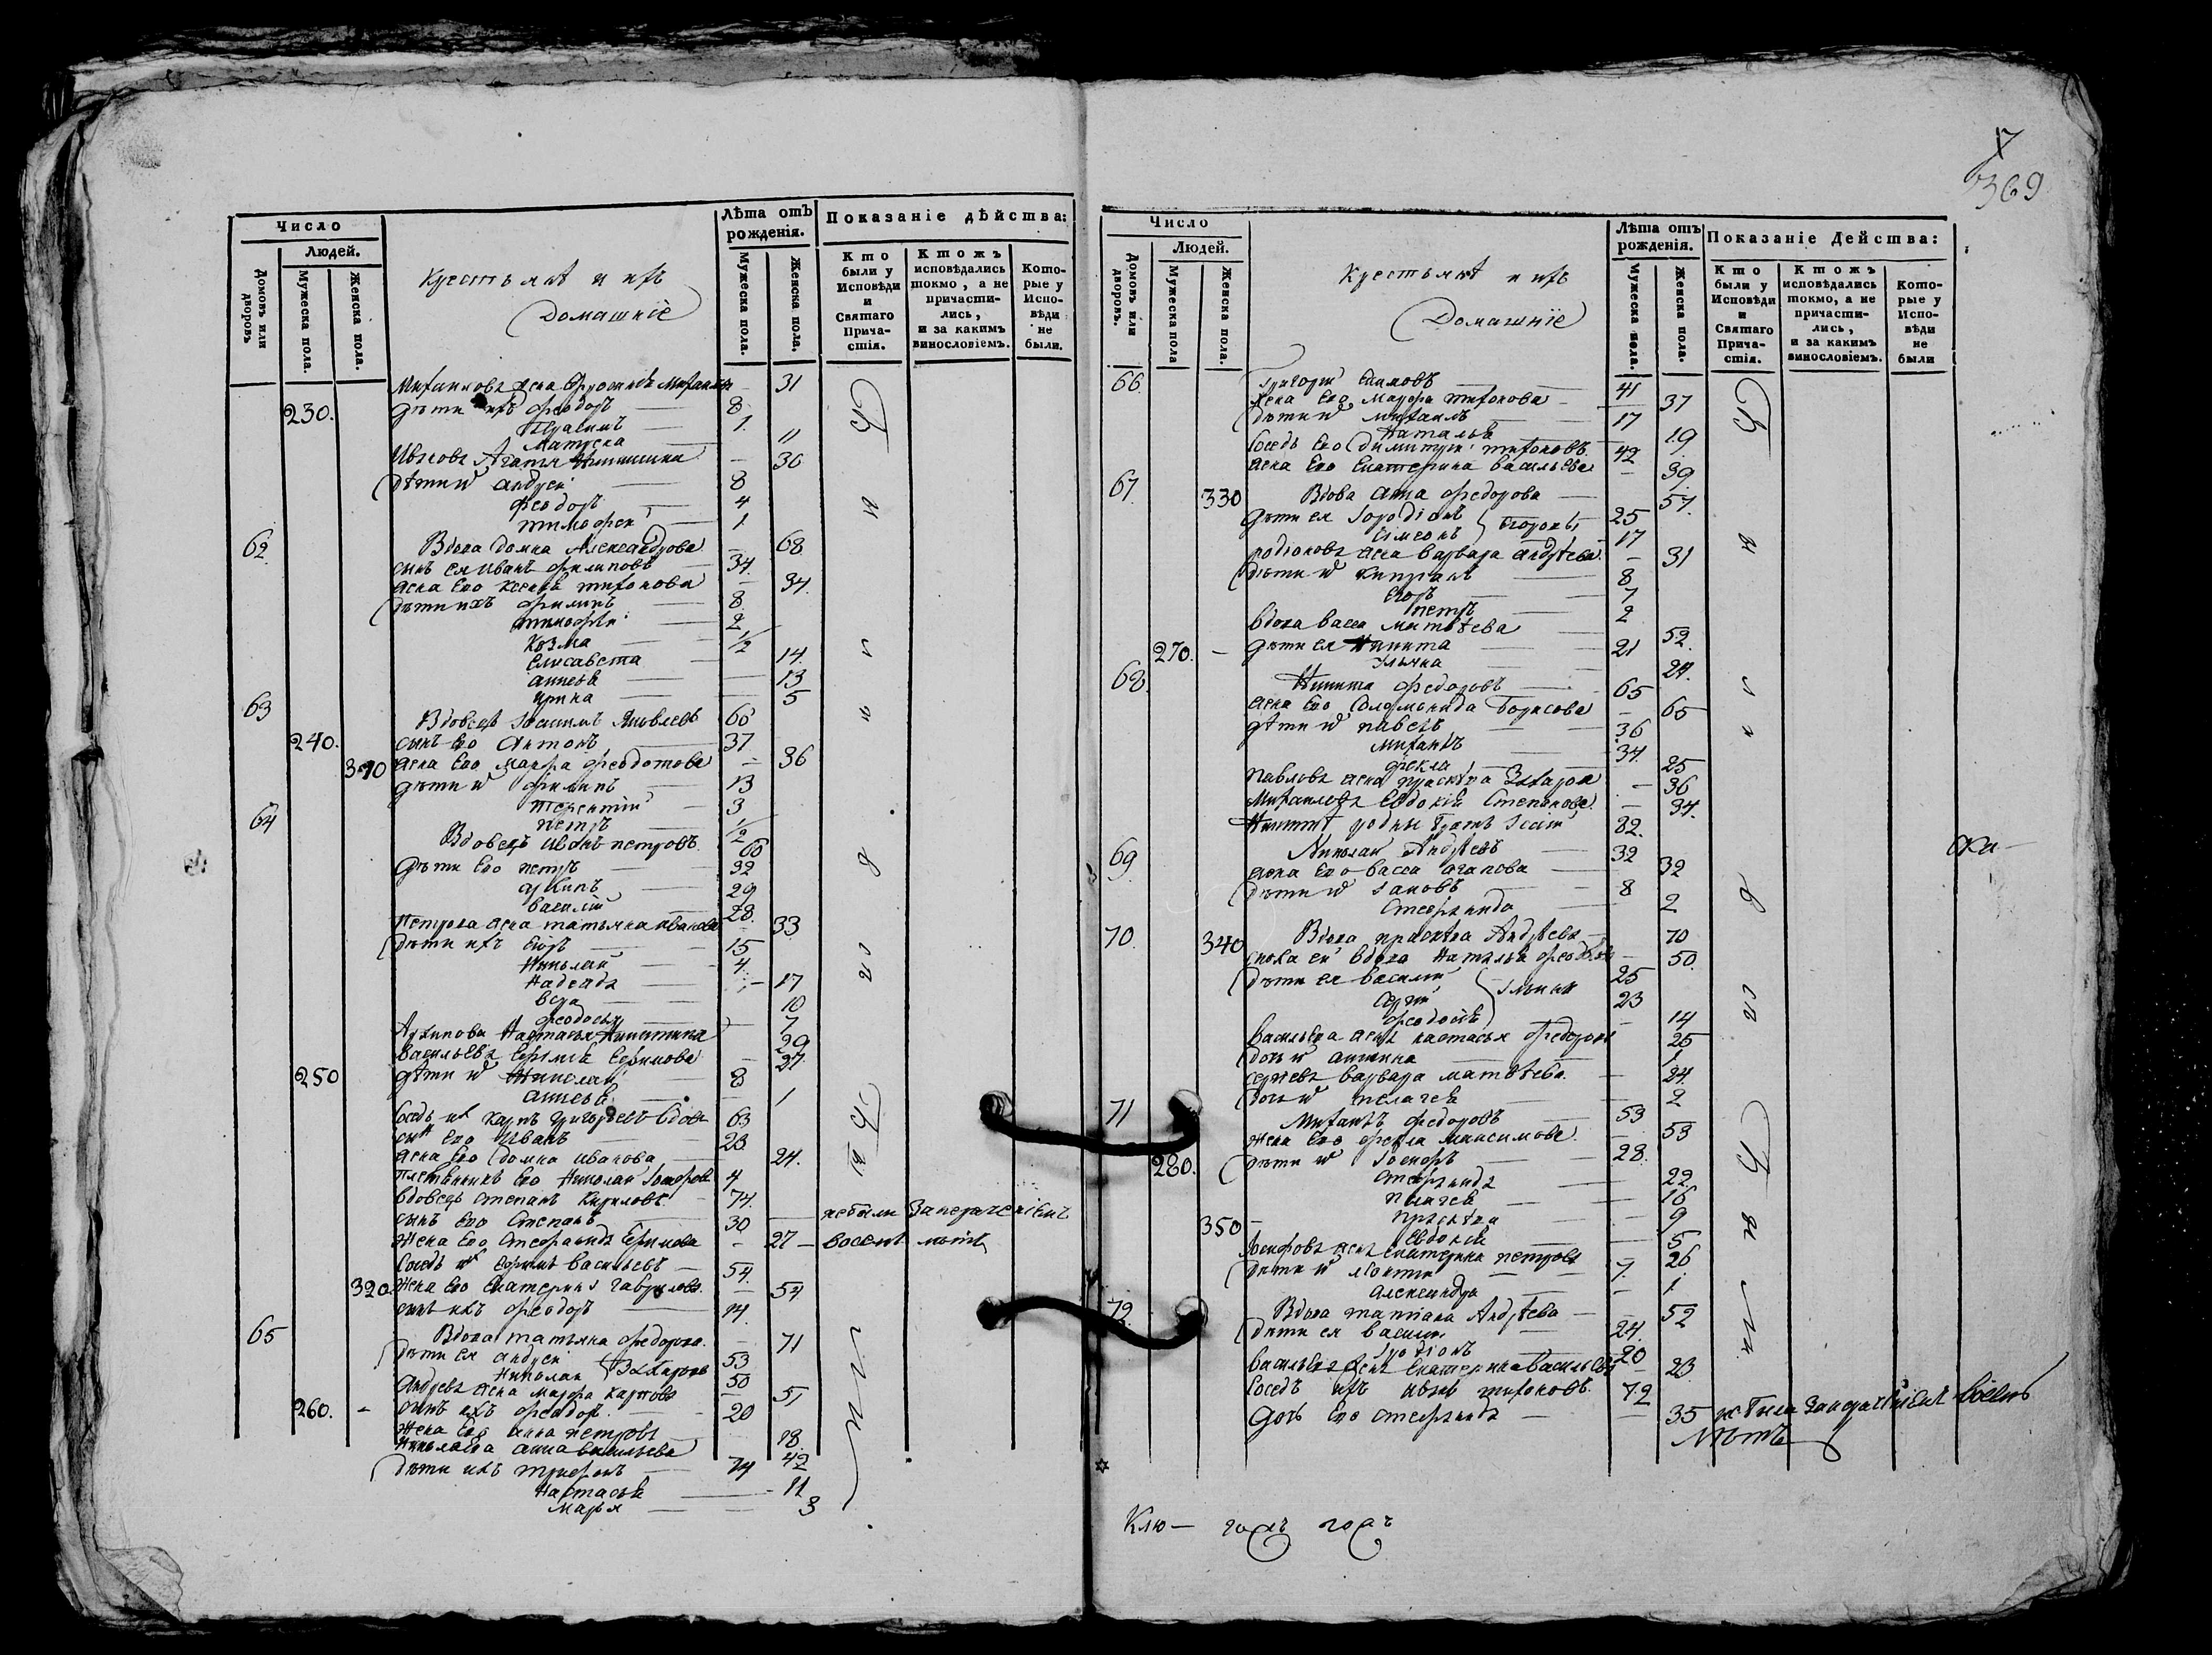 Число
Людей.
Домовъ или дворовъ
Мужеска пола.
Женска пола.
Крестьянѣ и ихъ
Домашнїе
Лѣта отъ рожденія.
Мужеска пола.
Женска пола.
Показаніе дѣйства:
Кто были у Исповѣди и Святаго Причастія.
Ктожъ исповѣдались токмо, а не причастились, и за какимъ винословіемъ.
Которые у Исповѣди не были.
Михаилова жена — 31
230. дѣти ихъ Феодоръ — 8
1
Матрена — 11
Иванова Агафья Никитина — 30
дѣти их Андрей — 8
Феодоръ — 4
Тимофей — 1
62 Вдова Домна Александрова — 68
сынъ ея Иванъ Филиповъ — 34
жена его Ксенія Тихонова — 34
дѣти ихъ Филипъ — 8
Тимофей — 2
Козма — 1/2
Елисавета — 14
13
Ирина — 5
63 Вдовецъ Іоакимъ Яковлевъ 66
240. сынъ его Антонъ — 37
310 жена его Мавра Феодотова — 36
дѣти их Филипъ — 13
Терентій — 3
Петръ — 1/2
64 Вдовецъ Иванъ Петровъ 60
дѣти его Петръ — 32
Архипъ — 29
Василій — 28
Петрова жена Татьяна Иванова 33
дѣти ихъ Егоръ — 15
Николай — 4
Надежда — 17
Вера — 10
Феодосья — 7
Архипова Настасья Никитина — 29
Васильева Ефимова — 27
250 дѣти их Николай — 8
1
соседъ их Карпъ Григорьевъ вдовъ 63
сынъ его Иванъ — 28
жена его Домна Иванова — 24
племянникъ его Николай 4
вдовецъ Степанъ Кириловъ — 74
сынъ его Степанъ — 30 небыли
жена его Стефанида Ефимова — 27 — восемь летъ
соседъ их Ефимъ Васильевъ — 54
320. жена его Екатерина Гаврилова — 54
сынъ ихъ Феодоръ — 14
65 Вдова Татьяна Федорова — 71
дѣти ея Андрей 53
Николай Захаровы 50
Андреева жена Мавра Карпова — 51
260. сынъ ихъ Феодоръ — 20
жена его Анна Петрова — 18
Николаева Анна Васильева 42
дѣти ихъ Трифонъ — 14
Настасья — 11
Марья — 3
369
Число
Людей.
Домовъ или дворовъ.
Мужеска пола
Женска пола.
Крестьянѣ и ихъ
Домашнїе
Лѣта отъ рожденія.
Мужеска пола.
Женска пола.
Показаніе Действа:
Кто были у Исповѣди и Святаго Причастія.
Ктожъ исповѣдались токмо, а не причастились, и за какимъ винословіемъ.
Которые у Исповѣди не были
66 Григорій Ефимовъ — 41
жена его Мавра Тихонова — 37
дѣти их Михаилъ — 17
Наталья — 19
соседъ его Димитрій Тихоновъ 42
жена его Екатерина Васильева — 39
67 330 Вдова Анна Федорова — 57
дѣти ея Іородіонъ 25
Сімеонъ Егоровы 17
Родіонова жена Варвара Андрѣева 31
дѣти их Кипріанъ — 8
Егоръ — 7
Петръ — 2
вдова Васса Матвѣева — 52
270. — дѣти ея Никита — 21
Ульяна — 24
68 Никита Федоровъ — 65
жена его Соломонида Борисова — 65
дѣти их Павелъ — 36
Михаилъ — 34
Фекла — 25
Павлова жена Прасковья Захарова — 36
Михаилова Евдокія Степанова — 34
Никиты родные братъ 32
69 Николай Андрѣевъ — 32
жена его Васса Агапова — 32
дѣти их Іаковъ — 8
Стефанида — 2
70 Вдова Прасковья Андрѣева — 70
340 сноха ей вдова Наталья 50
дѣти ея Василій 25
Сергій Ильины 23
14
Васильева жена Настасья Федорова 25
дочь их 1
Сергѣева Варвара Матвѣева — 24
дочь их Пелагея — 2
71 Михаилъ Федоровъ — 53
жена его Фекла Максимова — 53
280. дѣти их 28
Стефанида — 22
Пелагея — 16
Прасковья — 9
350 — Евдокія — 5
жена Екатерина Петрова 26
дѣти их Леонтій — 7
Александра — 1
72 Вдова Татіана Андрѣева — 52
дѣти ея Василій — 24
Іродіонъ — 20
Васильева жена Екатерина Васильева 23
соседъ ихъ Иванъ Тихоновъ 72
дочь его Стефанида — 35 восемь
лѣтъ